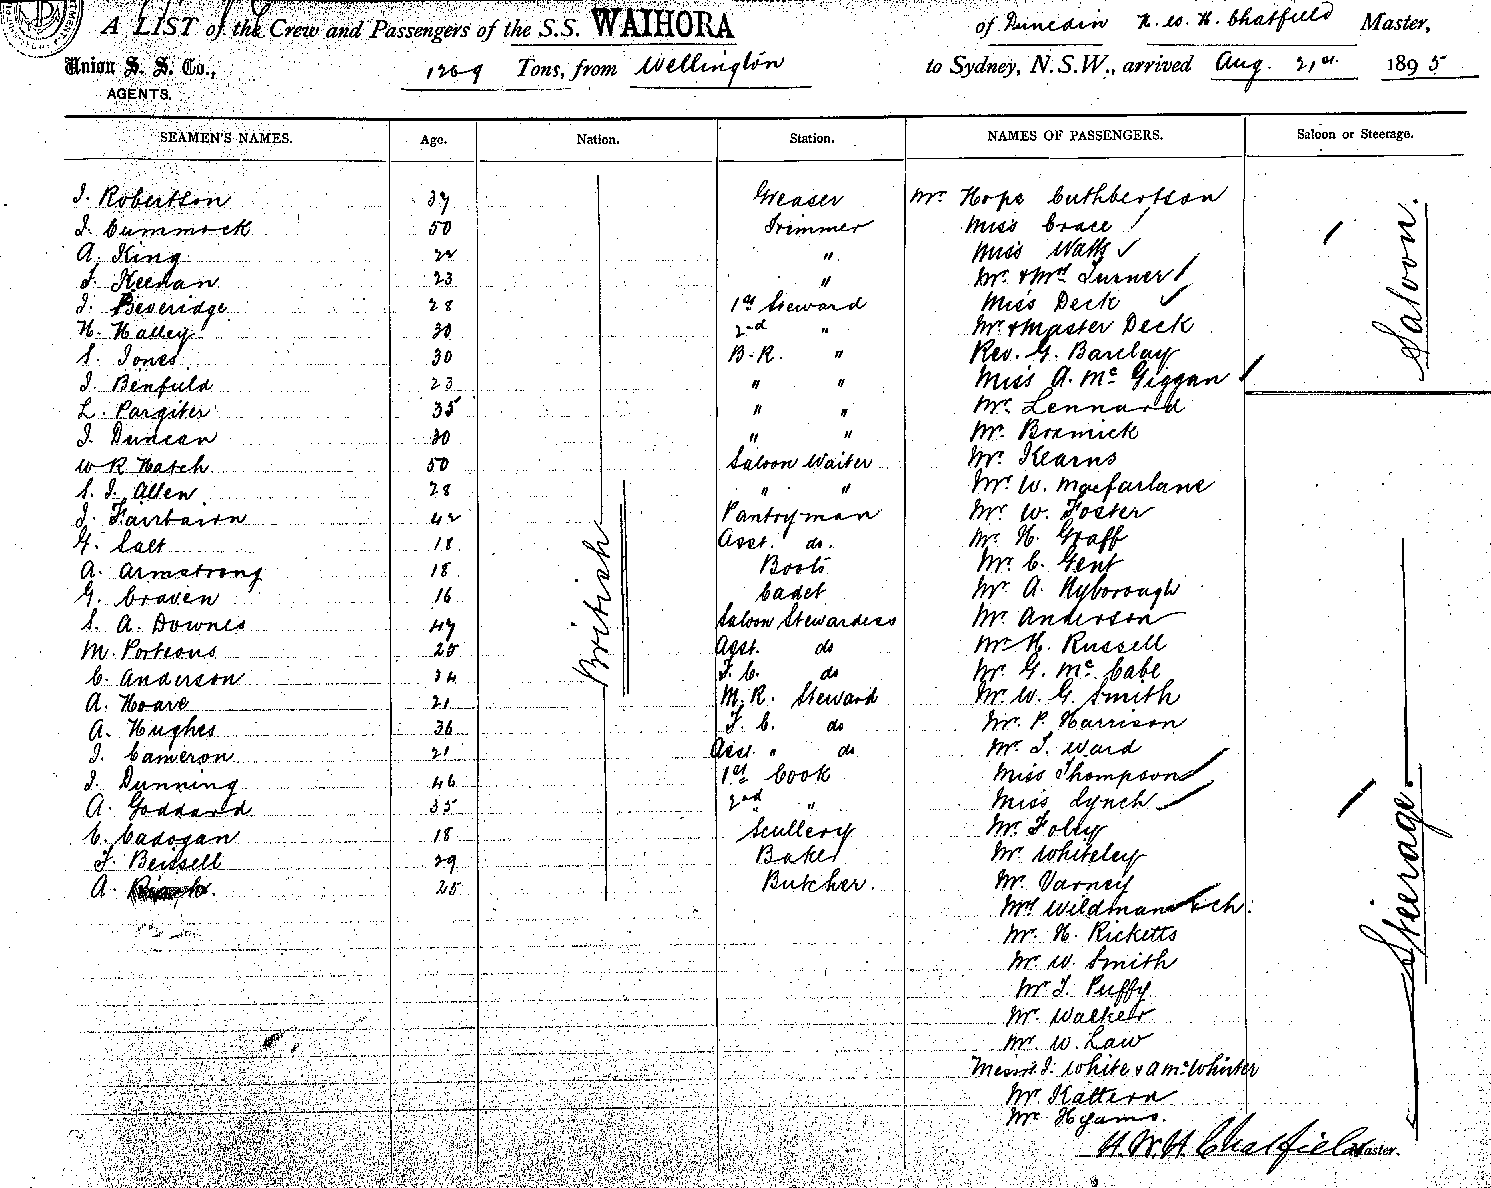 A LIST of the Crew and Passengers of the S.S. WAIHORA of Dunedin H. W. H. Chatfield Master,
Union S. S. Co., 1269 Tons, from Wellington to Sydney, N.S.W., arrived Aug. 21st 1895
AGENTS.
SEAMEN'S NAMES. Age. Nation. Station. NAMES OF PASSENGERS. Saloon or Steerage.
J. Robertson 37 Greaser Mr. Hope Cuthbertson
J. Cummock 50 Trimmer Miss Crace
A. King 22 " Miss Watts
J. Keenan 23 " Mr. & Mrs Turner
J. Beveridge 28 1st Steward Miss Deck
H. Halley 30 2nd " Mr & Master Deck
S. Jones 30 B.R. " Rev. G. Barclay
J. Benfield 23 " " Miss A. Mc Giggan
L. Pargiter 35 " " Mr. Lennard
J. Duncan 30 " " Mr.
W R Hatch 50 Saloon Waiter Mr. Kearns
S. J. Allen 28 " " Mr. W. Macfarlane
J. Fairbairn 42 Pantryman Mr. W. Foster
G. Salt 18 Asst. do. Mr. H. Graff
A. Armstrong 18 Boots Mr. C. Gent
G. Craven 16 Cadet Mr. A. Ryborough
S. A. Downes 47 Saloon Stewardess Mr. Anderson
M. Porteous 25 Asst. do Mr. H. Russell
C. Anderson 34 F. C. do Mr. G. Mc Cabe
A. Hoare 21 M. R. Steward Mr. W. G. Smith
A. Hughes 36 F. C. do Mr. P. Harrison
J. Cameron 21 Asst. " do Mr. T. Ward
J. Dunning 46 1st Cook Miss Thompson
A. Goddard 35 2nd " Miss Lynch
C. Cadogan 18 Scullery Mr. Foley
F. Beissell 29 Baker Mr. Whiteley
A. 25 Butcher. Mr. Varney
Mrs Wildman & ch.
Mr. H. Ricketts
Mr. W. Smith
Mr J. Puffy
Mr. Walker
Mr. W. Law
Messrs J. White & A McWhirter
Mr. Kattern
Mr. Hyams.
H. W. H. Chatfield Master.
British
Saloon.
Steerage.